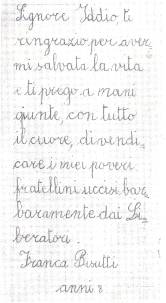 Signore Iddio, ti
ringrazio per aver
mi salvata la vita
e ti prego a mani
giunte, con tutto
il cuore, di vendi
care i miei poveri
fratellini uccisi bar
baramente dai Li
beratori.
Franca Pisutti
anni 8